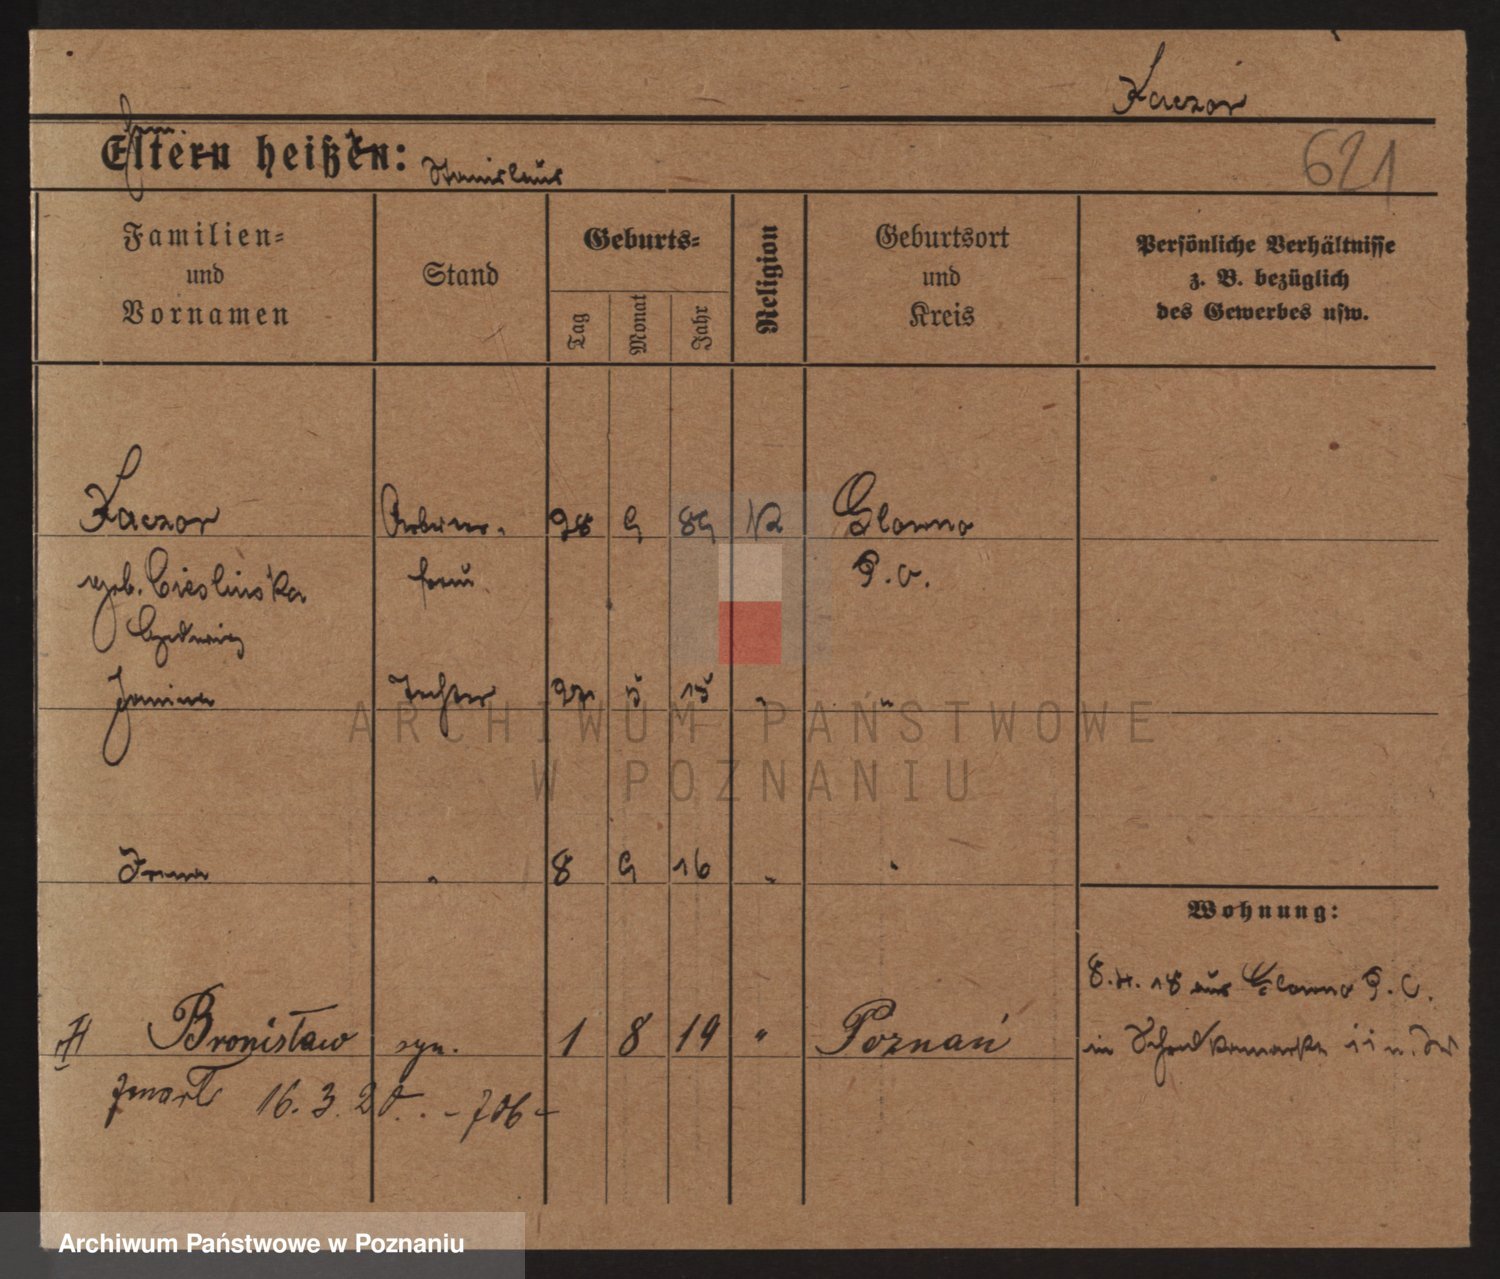 Kaczor
Eltern heißen: Stanislaus
621
Familien-
und
Vornamen
Stand
Geburts-
Tag
Monat
Jahr
Religion
Geburtsort
und
Kreis
Persönliche Verhältnisse
z. B. bezüglich
des Gewerbes usw.
Kaczor Arbeiter- 28 9 89 Glowno
geb. Cieslinska frau P. O.
Hedwig
Janina Tochter 27 5 15 " "
Irena " 8 9 16 " "
Wohnung:
8. 4. 18 aus Glowno P. O.
in
Bronisław syn. 1 8 19 " Poznań
zmarł 16. 3. 20. - 706 -
ARCHIWUM PAŃSTWOWE
W POZNANIU
Archiwum Państwowe w Poznaniu